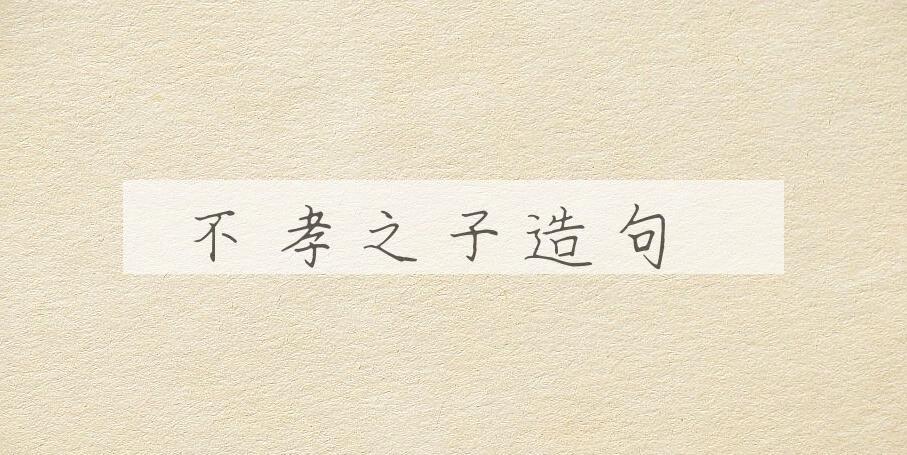 不孝之子造句